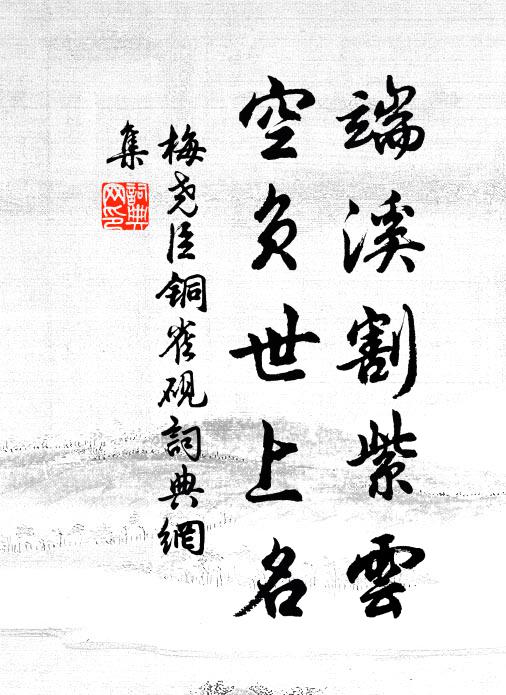 端溪割紫雲
空負世上名
梅堯臣銅雀硯詞典網
集
詞典
网印